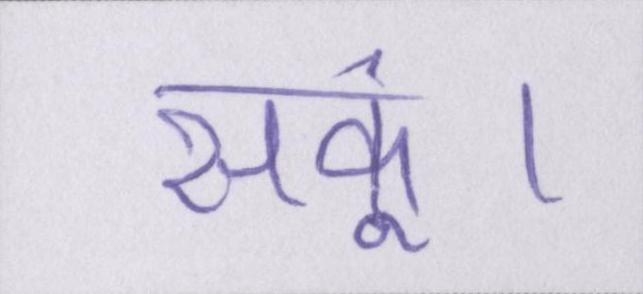 सकूं।